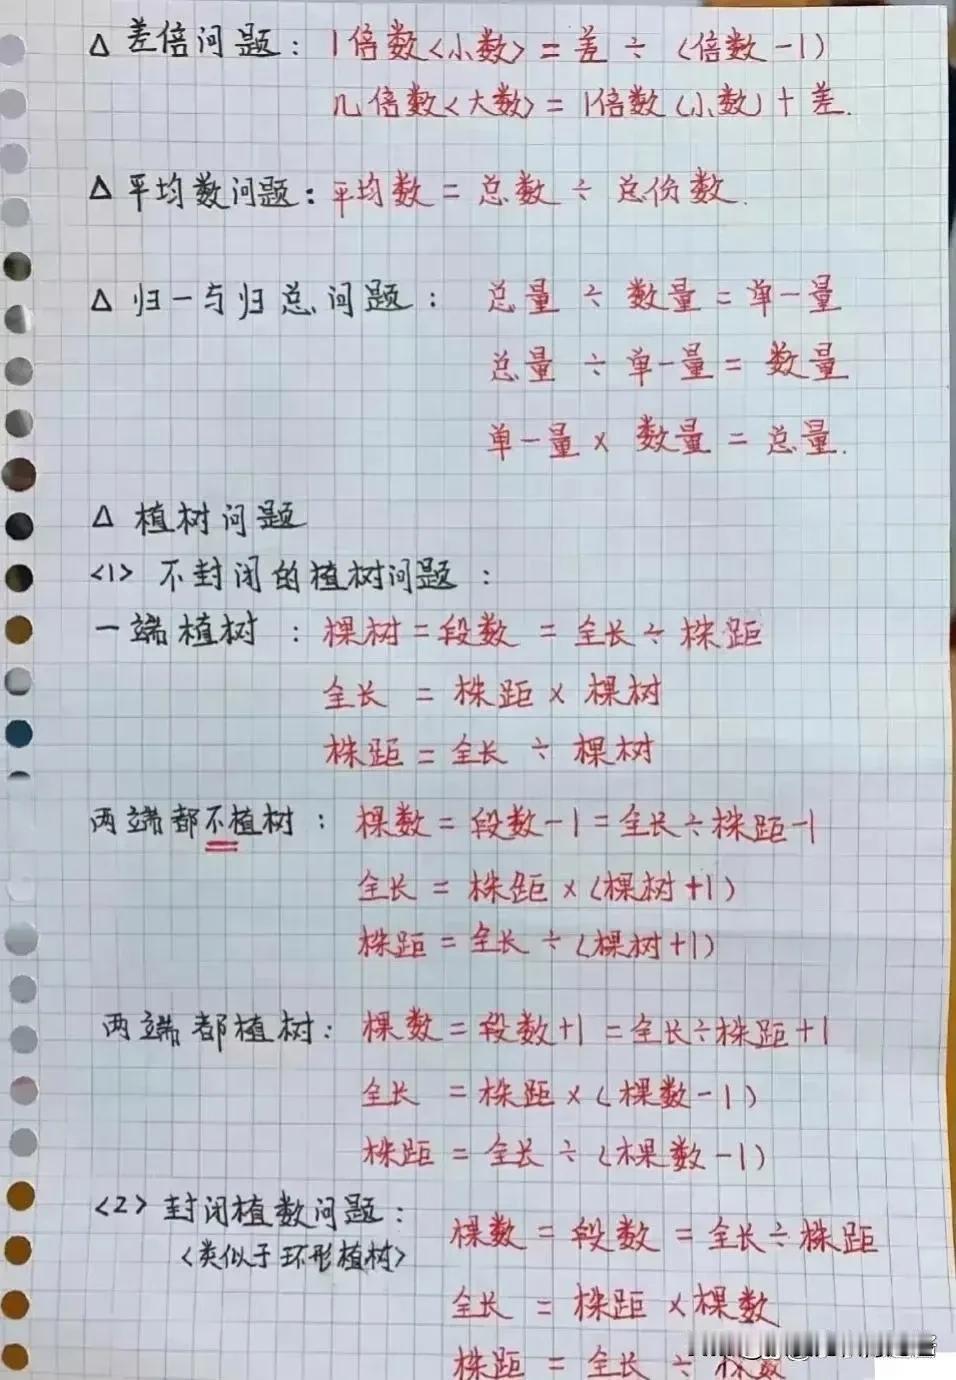 △ 差倍问题: 1倍数<小数> = 差 ÷ (倍数-1)
几倍数<大数> = 1倍数(小数) + 差.
△ 平均数问题: 平均数 = 总数 ÷ 总份数.
△ 归一与归总问题: 总量 ÷ 数量 = 单一量
总量 ÷ 单一量 = 数量
单一量 × 数量 = 总量.
△ 植树问题
<1> 不封闭的植树问题:
一端植树: 棵树 = 段数 = 全长 ÷ 株距
全长 = 株距 × 棵树
株距 = 全长 ÷ 棵树
两端都不植树: 棵数 = 段数-1 = 全长÷株距-1
全长 = 株距 × (棵树+1)
株距 = 全长 ÷ (棵树+1)
两端都植树: 棵数 = 段数+1 = 全长÷株距+1
全长 = 株距 × (棵数-1)
株距 = 全长 ÷ (棵数-1)
<2> 封闭植数问题: 棵数 = 段数 = 全长÷株距
<类似于环形植树>
全长 = 株距 × 棵数
株距 = 全长 ÷